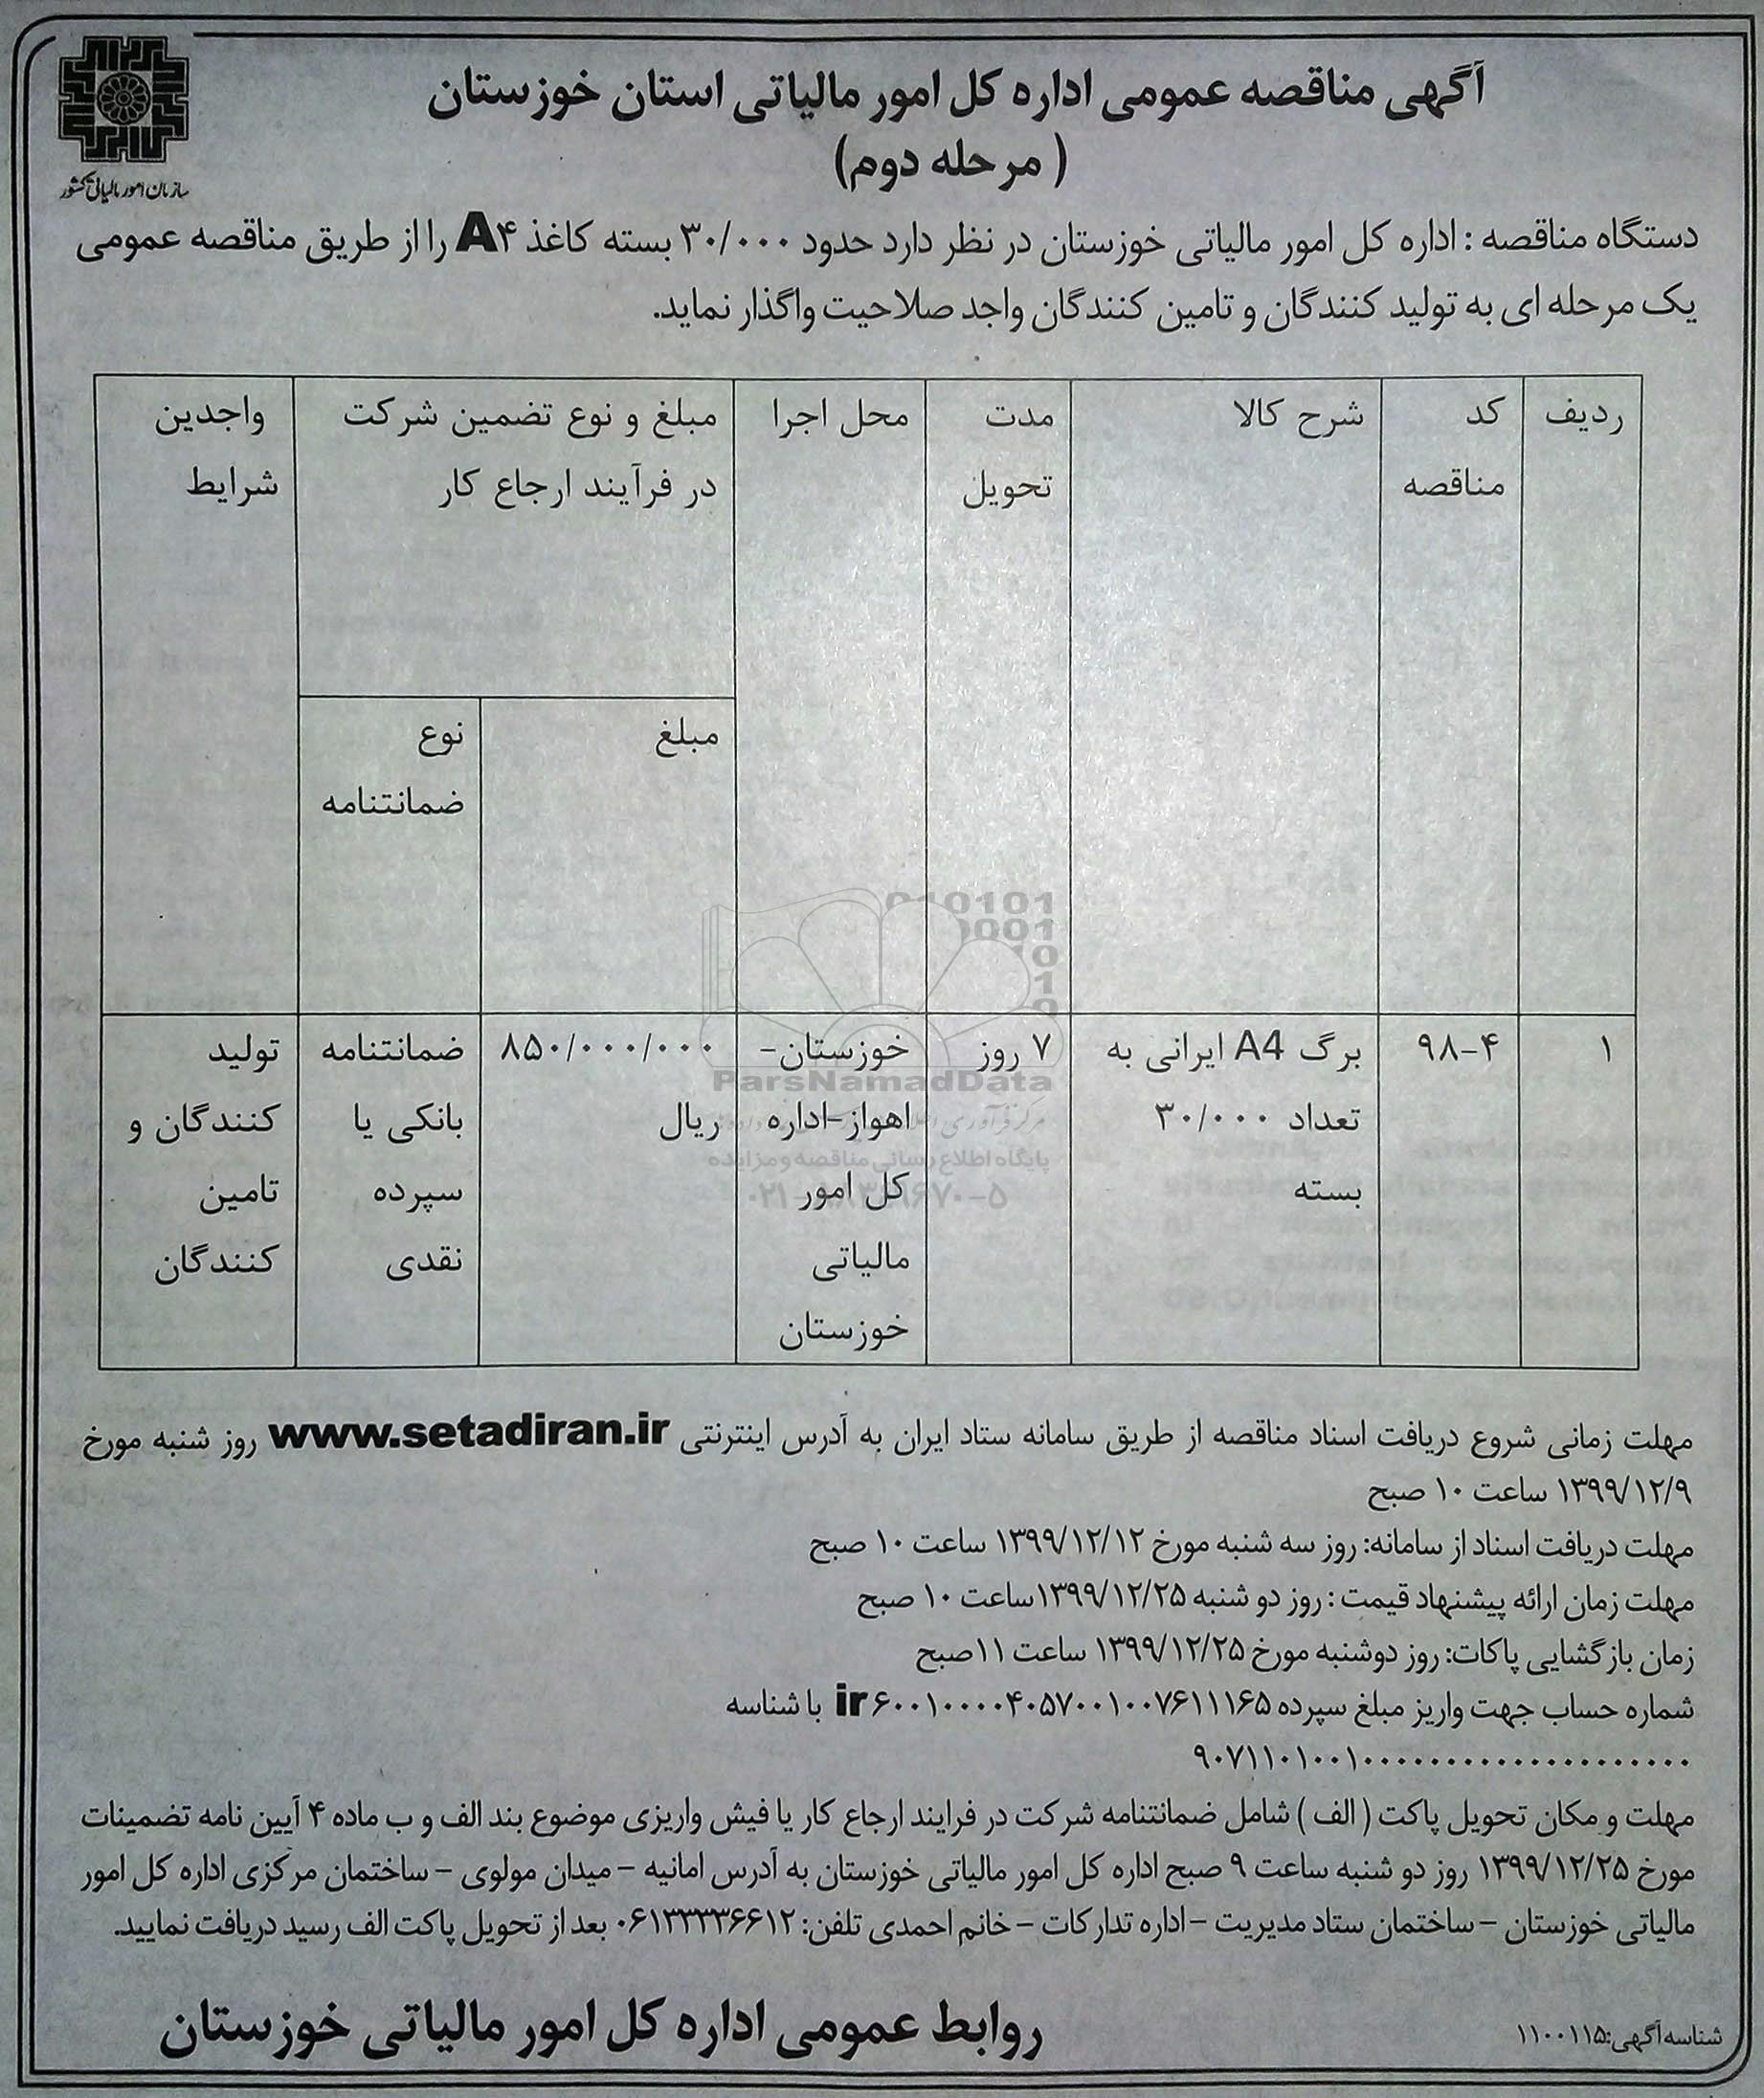 آگهی مناقصه عمومی اداره کل امور مالیاتی استان خوزستان
( مرحله دوم)
سازمان امور مالیاتی کشور
دستگاه مناقصه : اداره کل امور مالیاتی خوزستان در نظر دارد حدود ۳۰/۰۰۰ بسته کاغذ A۴ را از طریق مناقصه عمومی
یک مرحله ای به تولید کنندگان و تامین کنندگان واجد صلاحیت واگذار نماید.
ردیف
کد
مناقصه
شرح کالا
مدت
تحویل
محل اجرا
مبلغ و نوع تضمین شرکت
در فرآیند ارجاع کار
واجدین
شرایط
مبلغ
نوع
ضمانتنامه
۱
۹۸-۴
برگ A4 ایرانی به
تعداد ۳۰/۰۰۰
بسته
۷ روز
خوزستان-
اهواز-اداره
کل امور
مالیاتی
خوزستان
۸۵۰/۰۰۰/۰۰۰
ریال
ضمانتنامه
بانکی یا
سپرده
نقدی
تولید
کنندگان و
تامین
کنندگان
ParsNamadData
پایگاه اطلاع رسانی مناقصه و مزایده
مهلت زمانی شروع دریافت اسناد مناقصه از طریق سامانه ستاد ایران به آدرس اینترنتی www.setadiran.ir روز شنبه مورخ
۱۳۹۹/۱۲/۹ ساعت ۱۰ صبح
مهلت دریافت اسناد از سامانه: روز سه شنبه مورخ ۱۳۹۹/۱۲/۱۲ ساعت ۱۰ صبح
مهلت زمان ارائه پیشنهاد قیمت : روز دو شنبه ۱۳۹۹/۱۲/۲۵ساعت ۱۰ صبح
زمان بازگشایی پاکات: روز دوشنبه مورخ ۱۳۹۹/۱۲/۲۵ ساعت ۱۱صبح
شماره حساب جهت واریز مبلغ سپرده ir۶۰۰۱۰۰۰۰۴۰۵۷۰۰۱۰۰۷۶۱۱۱۶۵ با شناسه
مهلت و مکان تحویل پاکت ( الف ) شامل ضمانتنامه شرکت در فرایند ارجاع کار یا فیش واریزی موضوع بند الف و ب ماده ۴ آیین نامه تضمینات
مورخ ۱۳۹۹/۱۲/۲۵ روز دو شنبه ساعت ۹ صبح اداره کل امور مالیاتی خوزستان به آدرس امانیه – میدان مولوی – ساختمان مرکزی اداره کل امور
مالیاتی خوزستان – ساختمان ستاد مدیریت – اداره تدارکات – خانم احمدی تلفن: ۰۶۱۳۳۳۳۶۶۱۲ بعد از تحویل پاکت الف رسید دریافت نمایید.
روابط عمومی اداره کل امور مالیاتی خوزستان
شناسه آگهی:۱۱۰۰۱۱۵